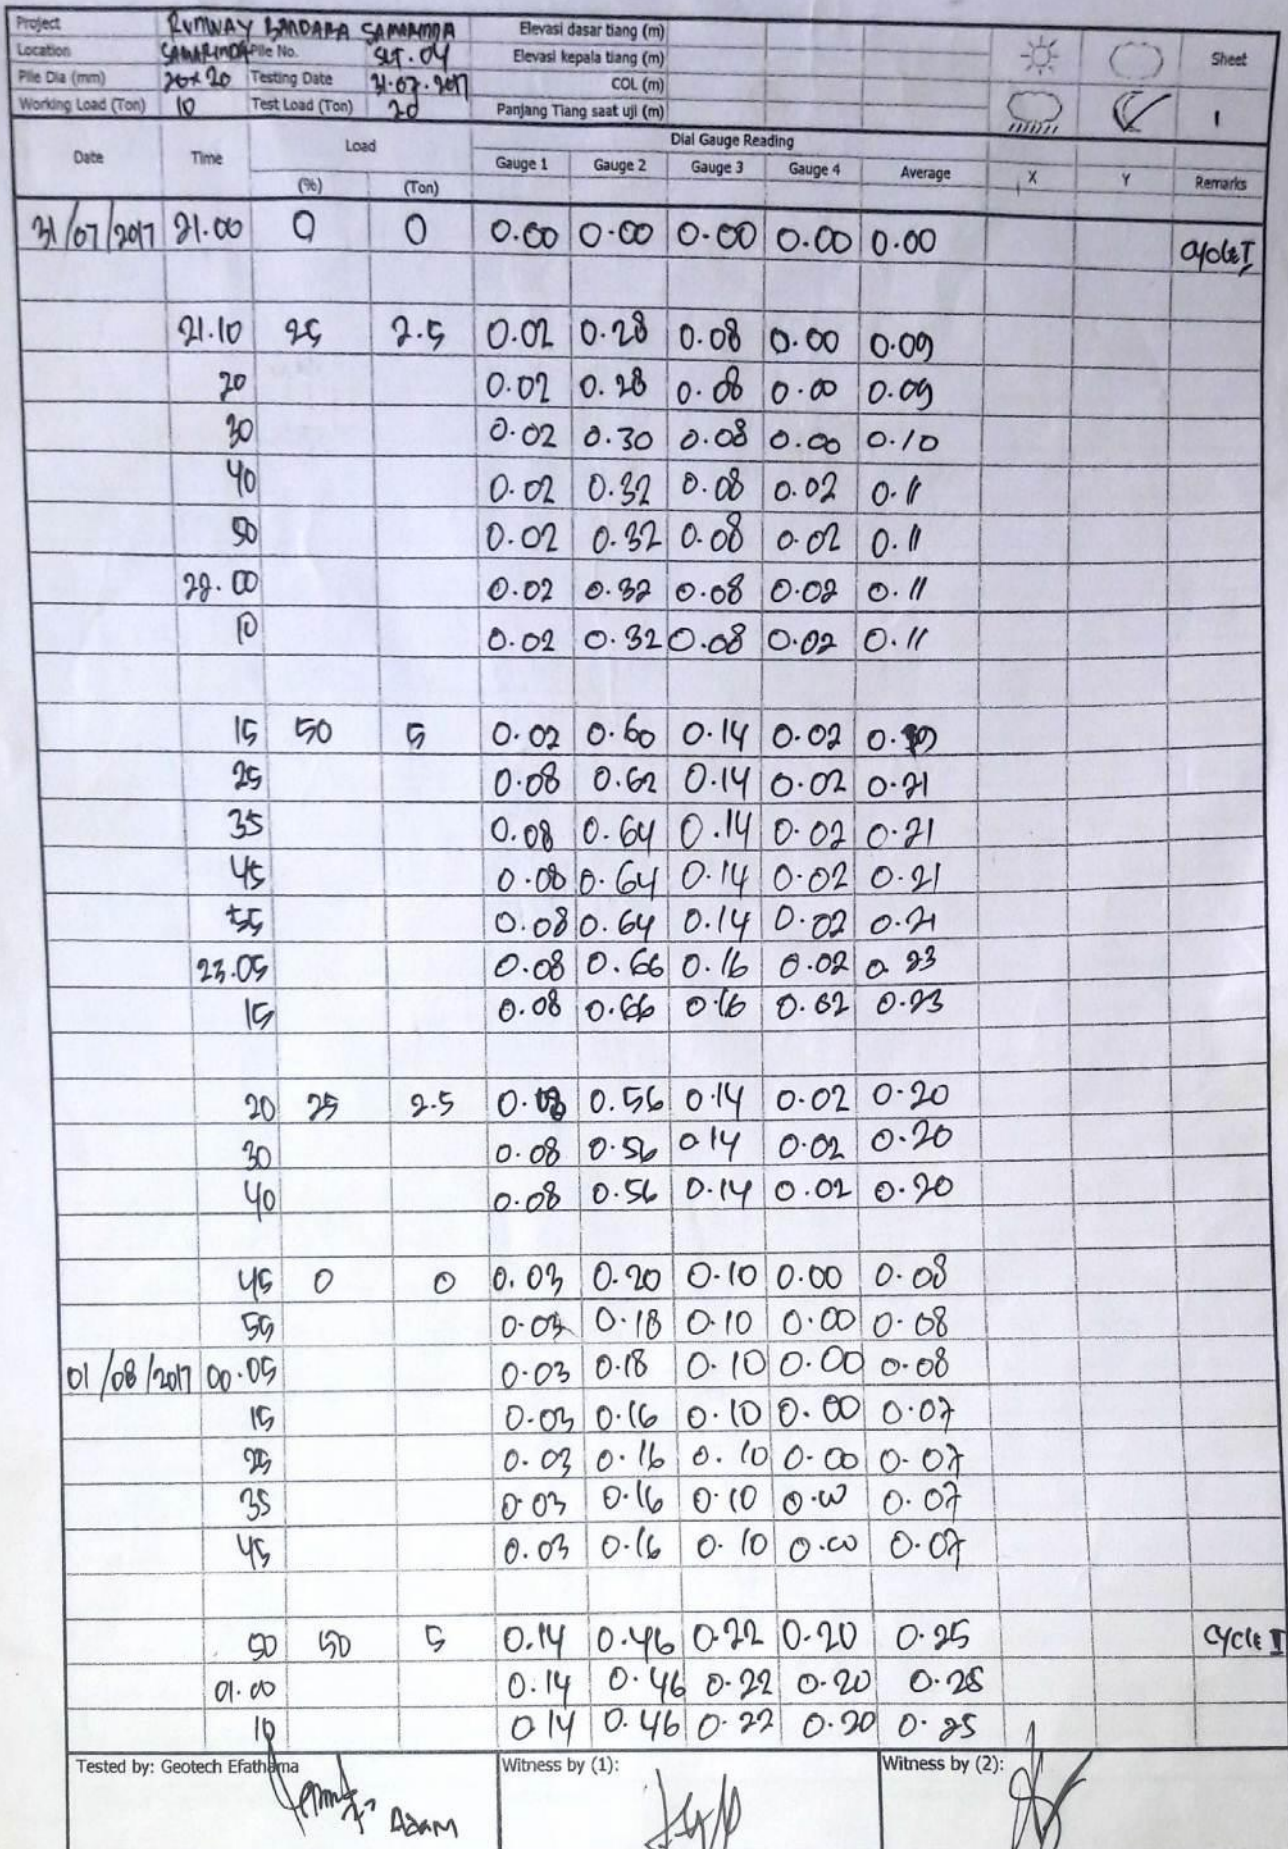 Project RUNWAY BANDARA SAMARINDA Elevasi dasar tiang (m)
Location SAMARINDA Pile No. SLT.04 Elevasi kepala tiang (m) Sheet
Pile Dia (mm) 20x20 Testing Date 31.07.2017 COL (m)
Working Load (Ton) 10 Test Load (Ton) 20 Panjang Tiang saat uji (m) 1
Date Time Load Dial Gauge Reading
(%) (Ton) Gauge 1 Gauge 2 Gauge 3 Gauge 4 Average X Y Remarks
31/07/2017 21.00 0 0 0.00 0.00 0.00 0.00 0.00 Cycle I
21.10 25 2.5 0.02 0.28 0.08 0.00 0.09
20 0.02 0.28 0.08 0.00 0.09
30 0.02 0.30 0.08 0.00 0.10
40 0.02 0.32 0.08 0.02 0.11
50 0.02 0.32 0.08 0.02 0.11
22.00 0.02 0.32 0.08 0.02 0.11
10 0.02 0.32 0.08 0.02 0.11
15 50 5 0.02 0.60 0.14 0.02 0.19
25 0.08 0.62 0.14 0.02 0.21
35 0.08 0.64 0.14 0.02 0.21
45 0.08 0.64 0.14 0.02 0.21
55 0.08 0.64 0.14 0.02 0.21
23.05 0.08 0.66 0.16 0.02 0.23
15 0.08 0.66 0.16 0.02 0.23
20 25 2.5 0.08 0.56 0.14 0.02 0.20
30 0.08 0.56 0.14 0.02 0.20
40 0.08 0.56 0.14 0.02 0.20
45 0 0 0.03 0.20 0.10 0.00 0.08
55 0.03 0.18 0.10 0.00 0.08
01/08/2017 00.05 0.03 0.18 0.10 0.00 0.08
15 0.03 0.16 0.10 0.00 0.07
25 0.03 0.16 0.10 0.00 0.07
35 0.03 0.16 0.10 0.00 0.07
45 0.03 0.16 0.10 0.00 0.07
50 50 5 0.14 0.46 0.22 0.20 0.25 Cycle II
01.00 0.14 0.46 0.22 0.20 0.25
10 0.14 0.46 0.22 0.20 0.25
Tested by: Geotech Efathama Witness by (1): Witness by (2):
AZAM